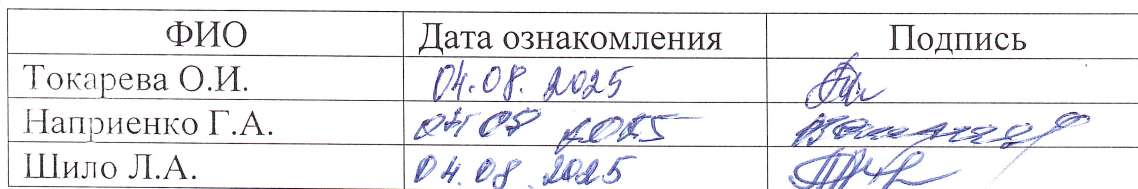 ФИО Дата ознакомления Подпись
Токарева О.И. 04.08.2025
Наприенко Г.А. 2025
Шило Л.А. 04.08.2025